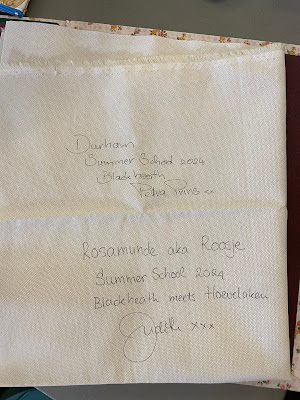 Durham
Summer School 2024
Blackheath
Prins xx
Rosamunde aka Roosje
Summer School 2024
Blackheath meets Hoevelaken
Judith xxx